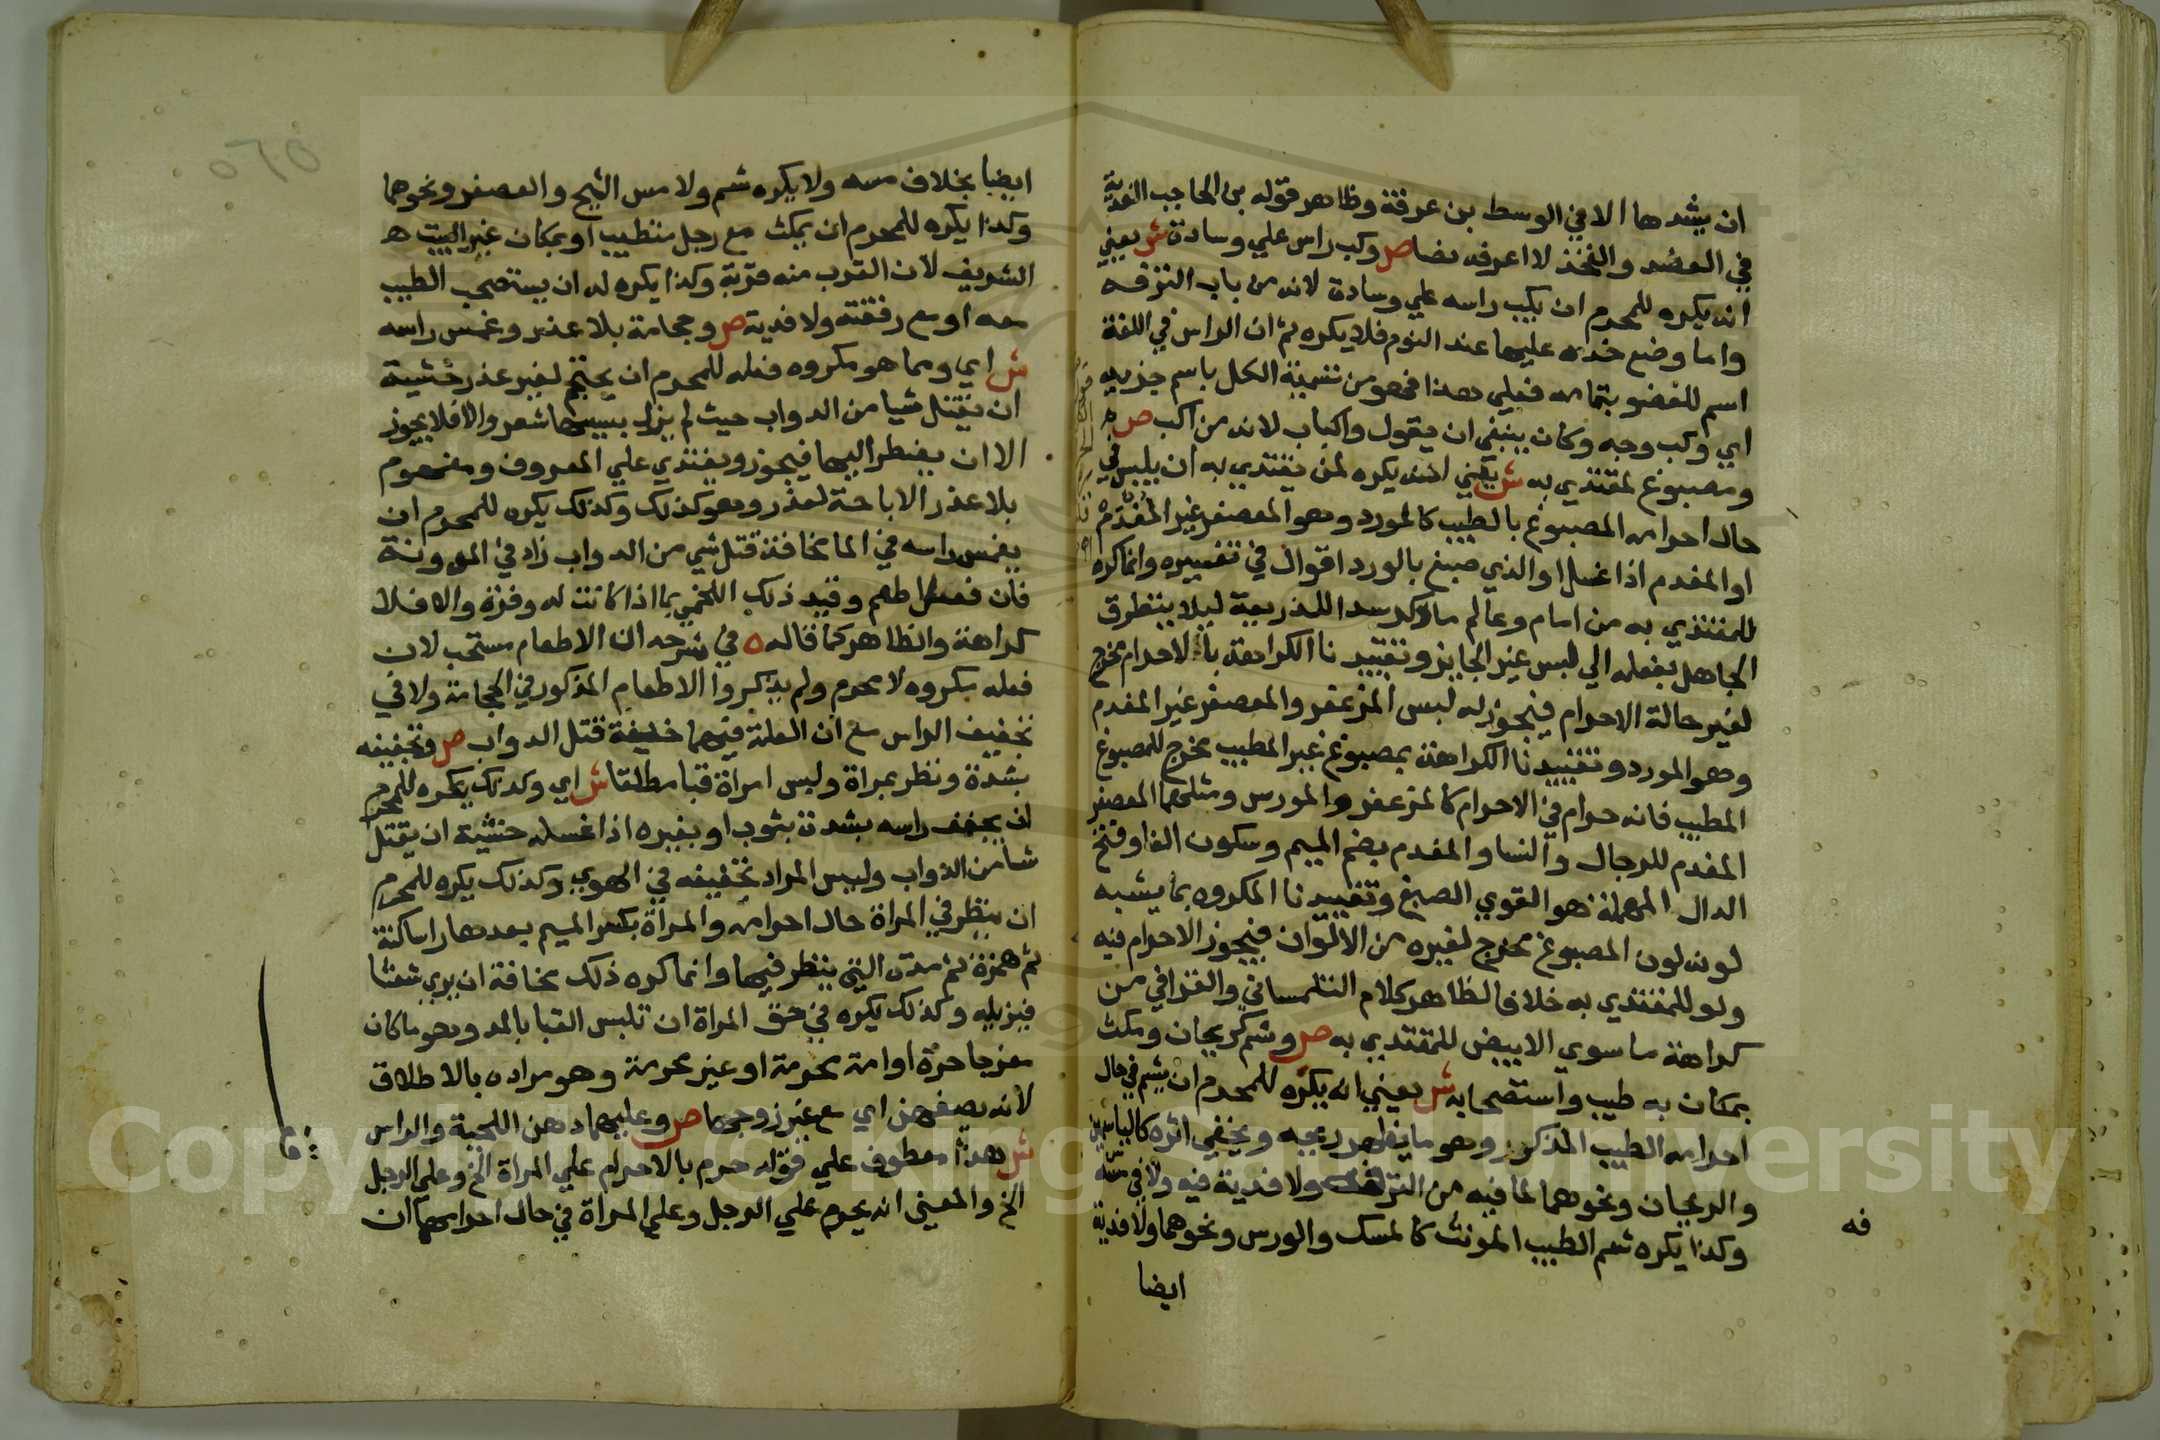 ان يشدها الا في الوسط بن عرفة وظاهر قوله بن الحاجب الفدية
في العضد والفخذ لا اعرفه نصا ص وكب راس علي وسادة ش يعني
انه يكره للمحرم ان يكب راسه علي وسادة لانه من باب الترفه
واما وضع خده عليها عند النوم فلا يكره ثم ان الراس في اللغة
اسم للعضو بتمامه فعلي هذا فهو من تسمية الكل باسم جزيه
اي وكب وجه وكان ينبغي ان يقول واكباب لانه من اكب ص
ومصبوغ لمقتدي به ش يعني انه يكره لمن يقتدي به ان يلبس في
حال احرامه المصبوغ بالطيب كالمورد وهو المعصفر غير المُفْدَم
او المفدم اذا غسل او الذي صبغ بالورد اقوال في تفسيره وانما كره
للمقتدي به من امام وعالم ما ذكر سدا للذريعة ليلا يتطرق
الجاهل بفعله الي لبس غير الجايز وتقييدنا الكراهة بالاحرام مخرج
لغير حالة الاحرام فيجوز له لبس المزعفر والمعصفر غير المفدم
وهو المورد وتقييدنا الكراهة بمصبوغ غير المطيب مخرج للمصبوغ
المطيب فانه حرام في الاحرام كالمزعفر والمورس ومثلهما المعصفر
المفدم للرجال والنسا والمفدم بضم الميم وسكون الفا وفتح
الدال المهملة هو القوي الصبغ وتقييدنا المكروه بما يشبه
لونه لون المصبوغ مخرج لغيره من الالوان فيجوز الاحرام فيه
ولو للمقتدي به خلافا لظاهر كلام التلمساني والقرافي من
كراهة ما سوي الابيض للمقتدي به ص وشم كريحان ومكث
بمكان به طيب واستصحابه ش يعني انه يكره للمحرم ان يشم في حال
احرامه الطيب المذكر وهو ما يظهر ريحه ويخفي اثره كالياسمين
والريحان ونحوهما لما فيه من الترفه ولا فدية فيه ولا في مسه
وكذا يكره شم الطيب المونث كالمسك والورس ونحوهما ولا فدية
فه
ايضا
ايضا بخلاف مسه ولا يكره شم ولا مس الشيح والعصفر ونحوهما
وكذا يكره للمحرم ان يمكث مع رجل متطيب او بمكان غير البيت
الشريف لان القرب منه قربة وكذا يكره له ان يستصحب الطيب
معه او مع رفقته ولا فدية ص وحجامة بلا عذر وغمس راسه
ش اي ومما هو مكروه فعله للمحرم ان يحتجم لغير عذر خشية
ان يقتل شيا من الدواب حيث لم يزل بسببها شعر والا فلا يجوز
الا ان يضطر اليها فيجوز ويفتدي علي المعروف ومفهوم
بلا عذر الاباحة لعذر وهو كذلك وكذلك يكره للمحرم ان
يغمس راسه في الما مخافة قتل شي من الدواب زاد في المدونة
فان فعل اطعم وقيد ذلك اللخمي بما اذا كانت له وفرة والا فلا
كراهة والظاهر كما قاله ه في شرحه ان الاطعام مستحب لان
فعله مكروه لا محرم ولم يذكروا الاطعام المذكور في الحجامة ولا في
تخفيف الراس مع ان العلة فيهما خيفة قتل الدواب ص وتجفيفه
بشدة ونظر بمراة ولبس امراة قبا مطلقا ش اي وكذلك يكره للمحرم
ان يجفف راسه بشدة بثوب او بغيره اذا غسله خشية ان يقتل
شيا من الدواب وليس المراد تجفيفه في الهوي وكذلك يكره للمحرم
ان ينظر في المراة حال احرامه والمراة بكسر الميم بعدها را ساكنة
ثم همزة ثم مدة التي ينظر فيها وانما كره ذلك مخافة ان يري شعثا
فيزيله وكذلك يكره في حق المراة ان تلبس القبا بالمد وهو ما كان
مفرجا حرة او امة محرمة او غير محرمة وهو مراده بالاطلاق
لانه يصفهن اي مع غير زوجها ص وعليهما دهن اللحية والراس
ش هذا معطوف علي قوله حرم بالاحرام علي المراة الخ وعلي الرجل
الخ والمعني انه يحرم علي الرجل وعلي المراة في حال احرامهما ان
Copyright © King Saud University